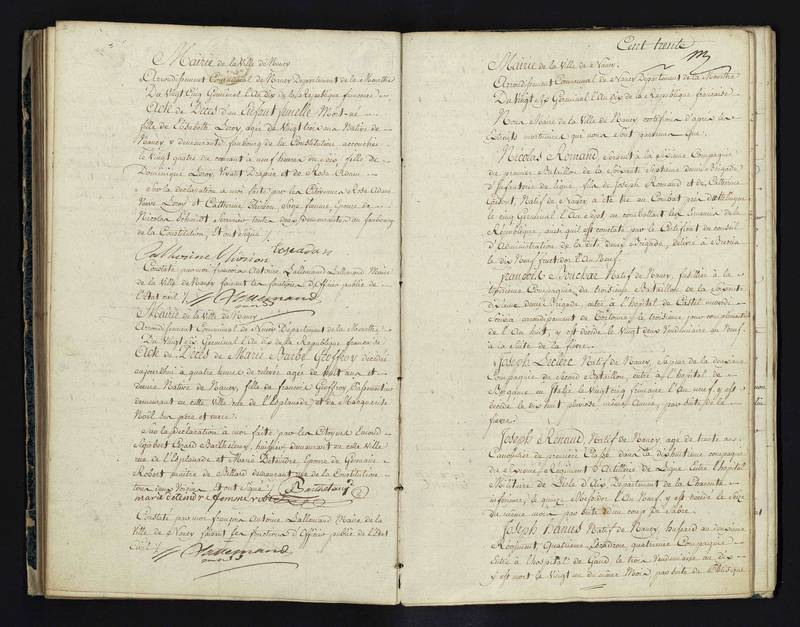 Mairie de la Ville de Nancy
Arrondissement Communal de Nancy Département de la Meurthe
Du Vingt Cinq Germinal l'An dix de la République française
Acte de Décès d'un Enfant femelle Mort-né
fille de Elisabeth Leroy, agée de Vingt trois ans Native de
Nancy y demeurante faubourg de la Constitution, accouchée
le Vingt quatre du courant à neuf heures du soir, fille de
Dominique Leroy, Vivant Drapier et de Rose Adam
Sur la déclaration à moi faite par les Citoyennes Rose Adam
Veuve Leroy et Catherine Sage femme, Epouse de
Nicolas Schmidt toutes deux demeurantes au faubourg
de la Constitution, Et ont signé
Catherine
Constaté par moi françois Antoine Lallemand Maire
de la Ville de Nancy faisant les fonctions d'Officier public de
l'Etat civil
Lallemand
Mairie de la Ville de Nancy
Arrondissement Communal de Nancy Département de la Meurthe
Du Vingt six Germinal l'An dix de la République française
Acte de Décès de Marie Barbe Geoffroy décédée
aujourd'hui à quatre heures de relevée agée de huit ans et
demie Native de Nancy, fille de françois Geoffroy,
demeurant en cette Ville rue de l'Esplanade, et de Marguerite
Noël ses père et mere
Sur la déclaration à moi faite par les Citoyens
Gérard Barthelemy, huissier demeurant en cette Ville
rue de l'Esplanade et Marie Epouse de Germain
Robert maître de Billard demeurant rue de la Constitution
tous deux Voisins Et ont signé
marie femme robert
Constaté par moi françois Antoine Lallemand Maire de la
Ville de Nancy faisant les fonctions d'Officier public de l'Etat
Civil
Lallemand
Cent trente
Mairie de la Ville de Nancy
Arrondissement Communal de Nancy Département de la Meurthe
Du Vingt six Germinal l'An dix de la République française
Nous Maire de la Ville de Nancy, certifions d'après les
Extraits mortuaires qui nous sont parvenus que
Nicolas Romand, Sergent à la Compagnie
du premier Bataillon de la Soixante Septieme demi-Brigade
d'Infanterie de ligne, fils de Joseph Romand et de Catherine
Natif de Nancy à été tué au Combat près d'
le cinq Germinal l'An sept en combattant les Ennemis de la
République, ainsi qu'il est constaté par le Certificat du conseil
d'Administration de la dite demi-Brigade, délivré à Brescia
le dix Neuf fructidor l'An Neuf.
françois Bouchar Natif de Nancy, fusillier à la
Compagnie du troisieme Bataillon de la Soixante
demi Brigade, entré à l'hopital de Castel nuovo
arrondissement de Tortone, le troisieme jour complementaire
de l'An huit, y est décédé le Vingt deux Vendemiaire An Neuf
à la suite de la fievre
Joseph Leclerc Natif de Nancy, Sapeur de la
Compagnie du Second Bataillon, entré à l'hopital de
Bergame en Italie le Vingt cinq frimaire l'An neuf y est
décédé le dix huit pluviose même Année, par suite de la
fievre
Joseph Renaud, Natif de Nancy, agé de trente ans
Canonier de première Classe dans la dix huitieme compagnie
du Régiment d'Artillerie de Ligne Entré l'hopital
Militaire de l'Isle d'Aix Département de la Charente
inférieure, le quinze Messidor l'An Neuf, y est décédé le Seize
du même mois par suite d'un coup de Sabre
Joseph hanus Natif de Nancy, hussard au deuxieme
Régiment, quatrieme Escadron, quatrieme Compagnie,
Entré à l'hospital de Gand, le trois Vendemiaire An dix
y est mort le Vingt un du même Mois par suite de Phtisique